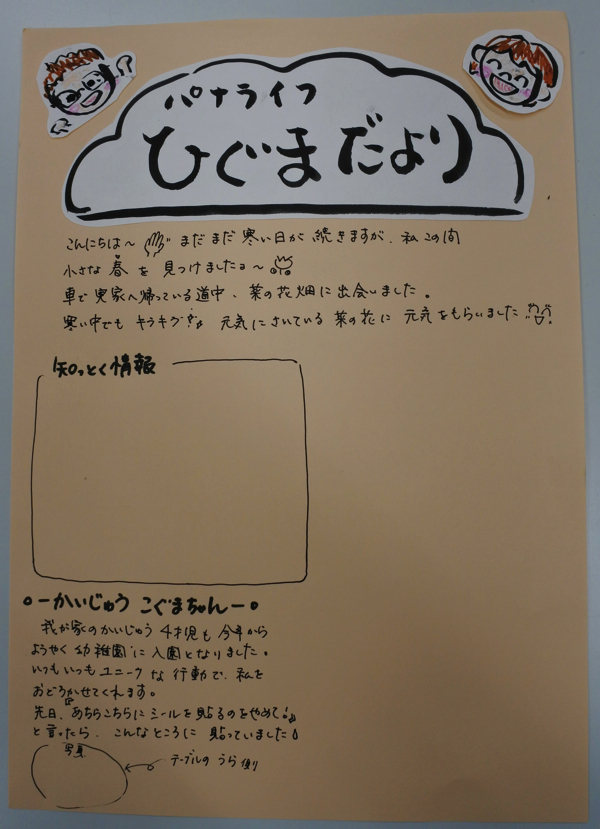 パナライフ
ひぐまだより
こんにちは～ まだまだ寒い日が続きますが、私この間
小さな春を見つけましたョ～
車で実家へ帰っている道中、菜の花畑に出会いました。
寒い中でもキラキラ 元気にさいている菜の花に元気をもらいました
知っとく情報
○ーかいじゅうこぐまちゃんー○
我が家のかいじゅう4才児も今年から
ようやく幼稚園に入園となりました。
いつもいつもユニークな行動で、私を
おどろかせてくれます。
先日、『あちらこちらにシールを貼るのをやめて!』
と言ったら、こんなところに貼っていました
写真
テーブルのうら側